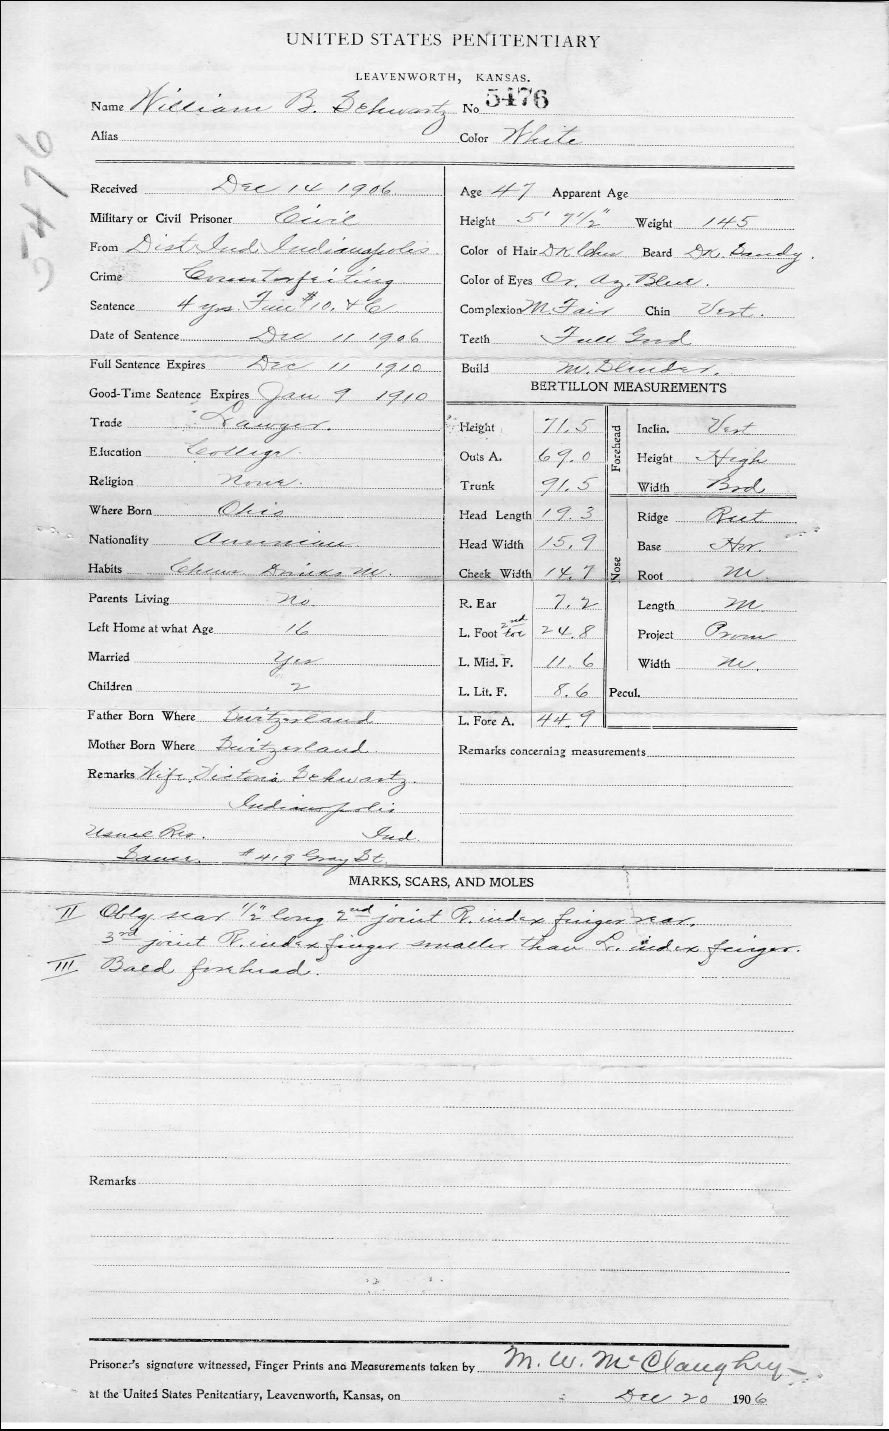 UNITED STATES PENITENTIARY
LEAVENWORTH, KANSAS.
Name William B. Schwartz No 5476
Alias
Color White
5476
Received Dec 14 1906
Military or Civil Prisoner Civil
From Dist Ind. Indianapolis
Crime Counterfeiting
Sentence 4 yrs. Fine $10. & C.
Date of Sentence Dec 11 1906
Full Sentence Expires Dec 11 1910
Good-Time Sentence Expires Jan 9 1910
Trade Lawyer.
Education College.
Religion None.
Where Born Ohio
Nationality American
Habits Chews Drinks M.
Parents Living No.
Left Home at what Age 16
Married Yes
Children 2
Father Born Where Switzerland
Mother Born Where Switzerland
Remarks Wife Victoria Schwartz.
Indianapolis
Usual Res. Ind.
Same. #419 Gray St.
Age 47 Apparent Age
Height 5' 7½" Weight 145
Color of Hair DK Beard DK. Sandy.
Color of Eyes Or. Az. Blue.
Complexion M. Fair Chin Vert.
Teeth Full Good
Build M. Slender.
BERTILLON MEASUREMENTS
Height 71.5
Outs A. 69.0
Trunk 91.5
Head Length 19.3
Head Width 15.9
Cheek Width 14.7
R. Ear 7.2
L. Foot 2nd toe 24.8
L. Mid. F. 11.6
L. Lit. F. 8.6
L. Fore A. 44.9
Forehead
Inclin. Vert
Height High
Width Brd.
Nose
Ridge Rect
Base Hor.
Root M.
Length M
Project Prom
Width M.
Pecul.
Remarks concerning measurements
MARKS, SCARS, AND MOLES
II Oblq scar ½" long 2nd joint R. index finger rear.
3rd joint R. index finger smaller than L. index finger.
III Bald forehead.
Remarks
Prisoner's signature witnessed, Finger Prints and Measurements taken by M. W. McClaughry
at the United States Penitentiary, Leavenworth, Kansas, on Dec 20 1906